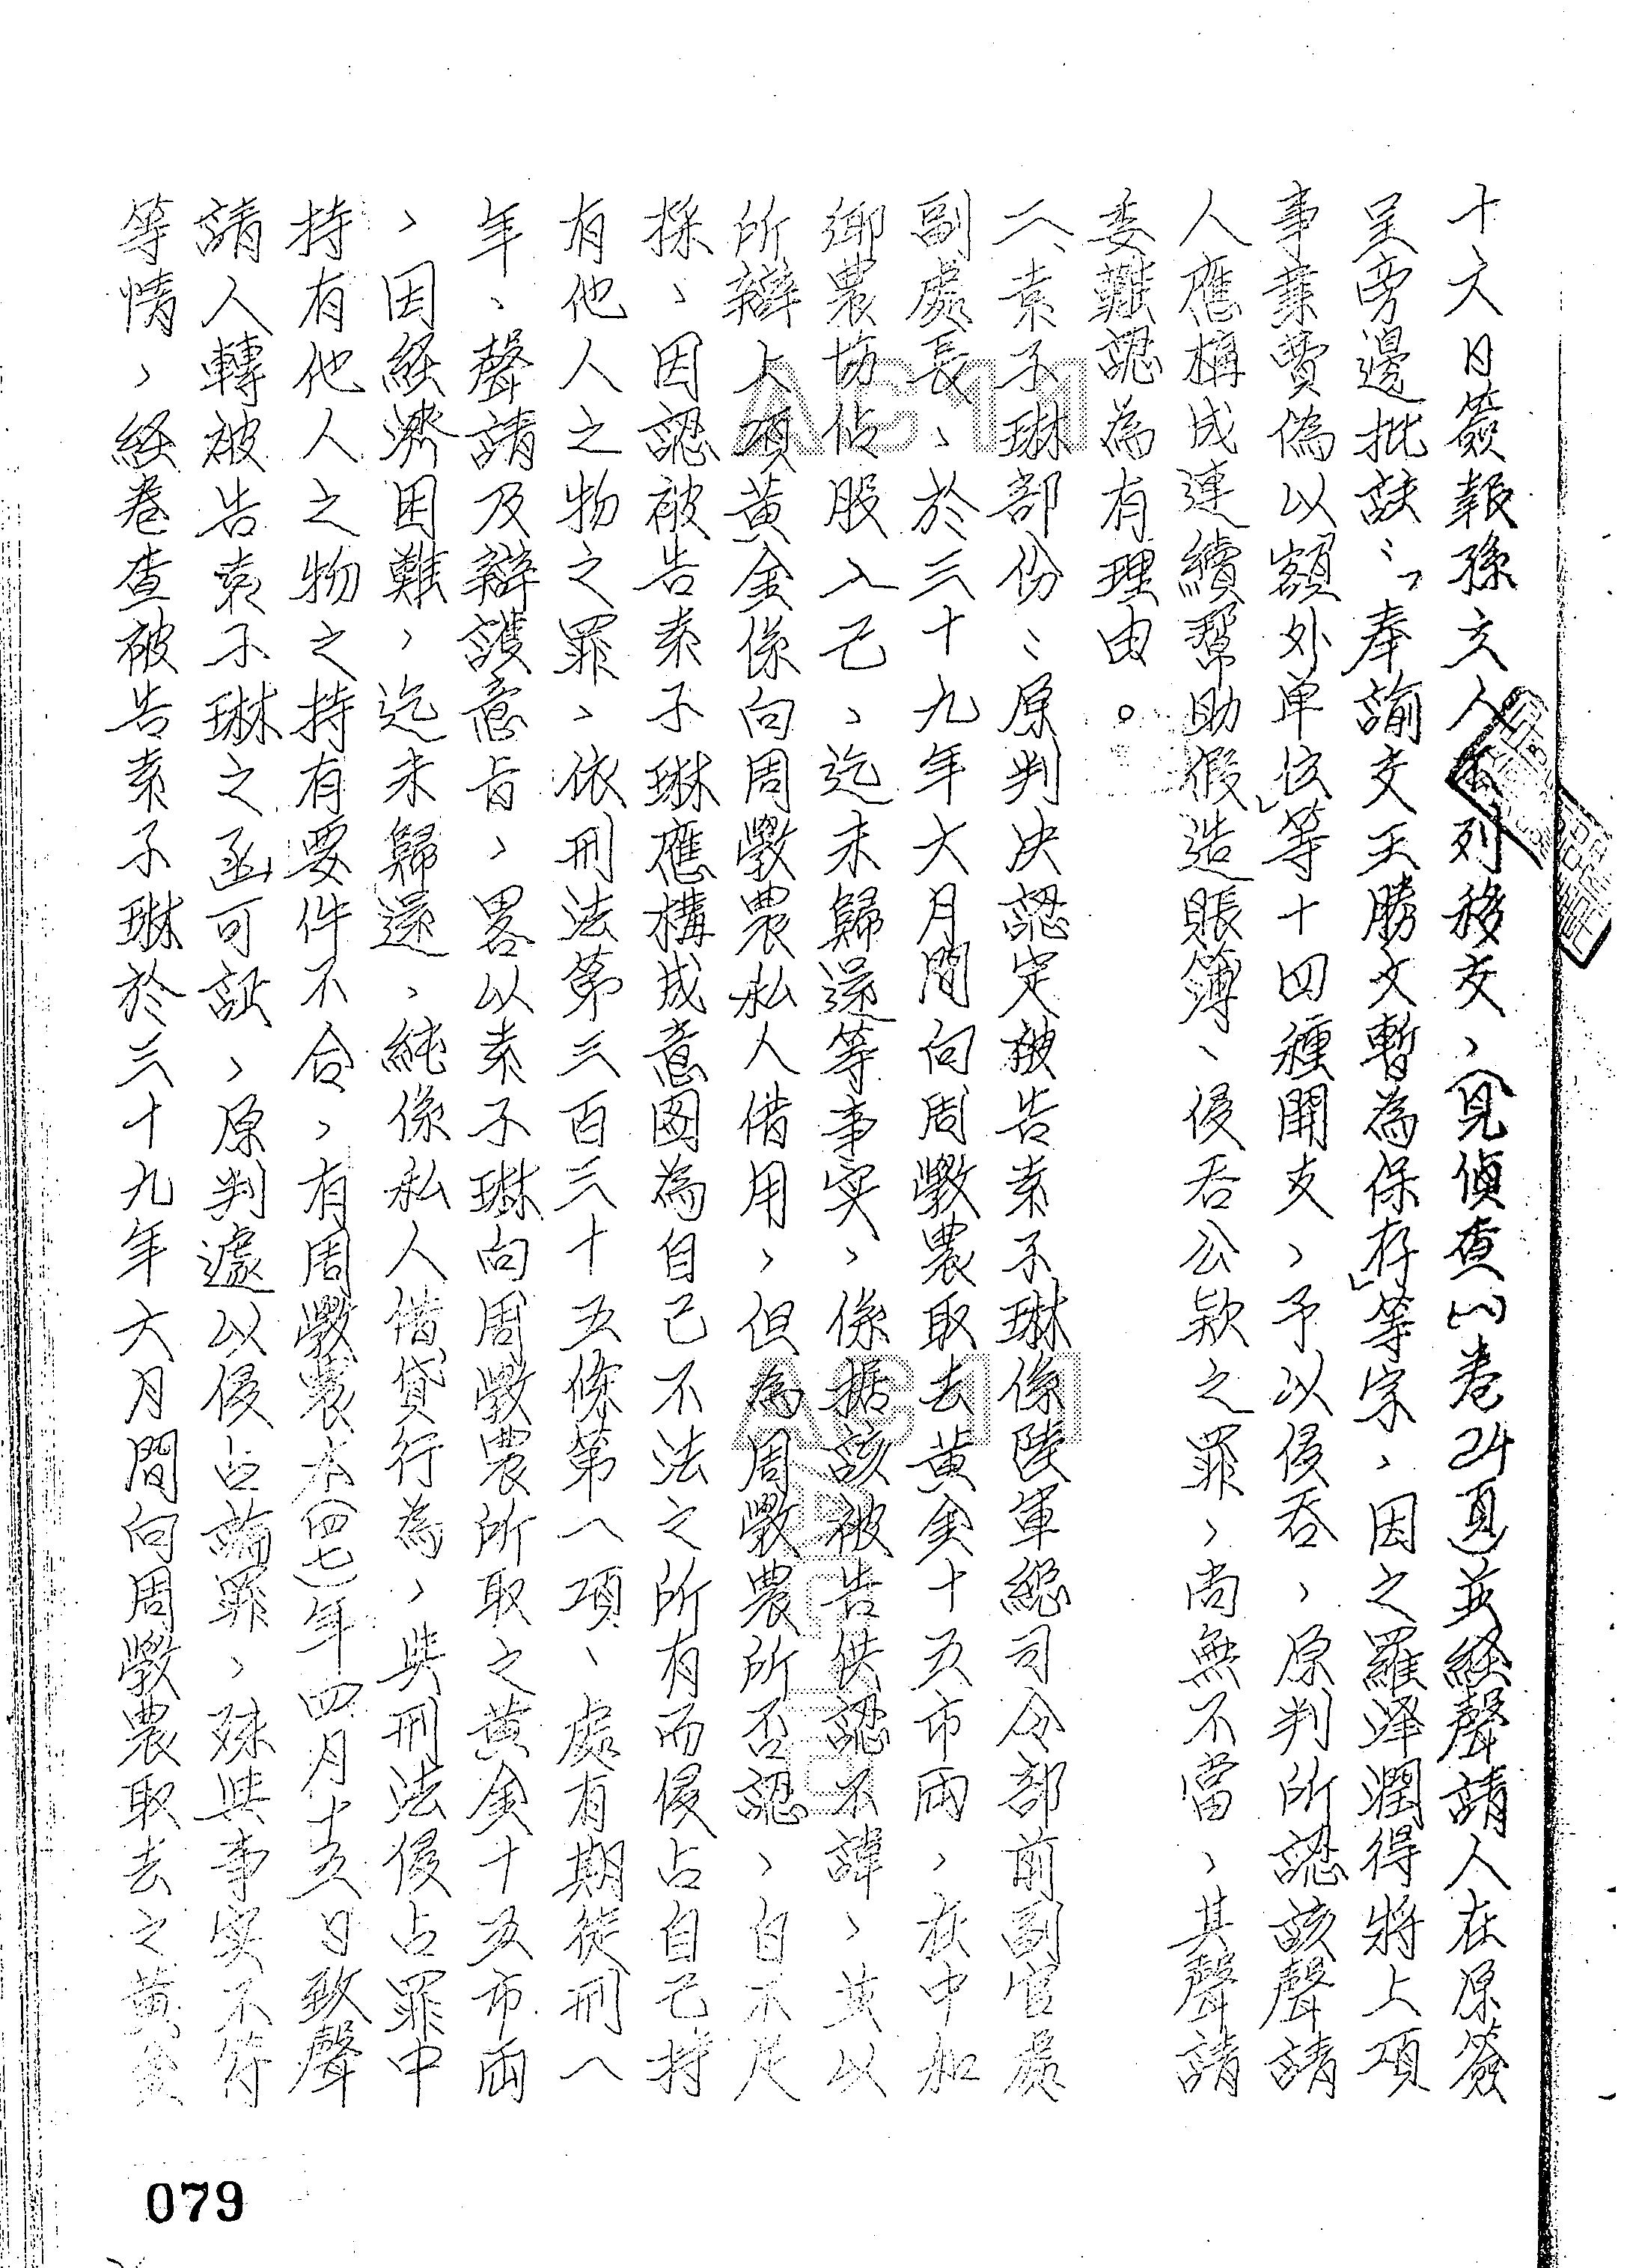 十六日簽報孫立人不列移交，（見偵查(1)卷24頁）並経聲請人在原簽
呈旁邊批註：「奉諭交王勝文暫為保存」等字，因之羅澤潤得將上項
事業費偽以額外单位」等十四種開支，予以侵吞，原判所認該聲請
人應構成連續幫助假造賬簿、侵吞公款之罪，尚無不當，其聲請
委難認為有理由。
二、袁子琳部份：原判決認定被告袁子琳係陸軍総司令部前副官處
副處長，於三十九年六月間向周斅農取去黃金十五市兩，在中和
鄉農場佔股入己，迄未歸還等事实，係据該被告供認不諱，其以
所辯上項黃金係向周斅農私人借用，但為周斅農所否認，自不足
採，因認被告袁子琳應構成意図為自己不法之所有而侵占自己持
有他人之物之罪，依刑法第三百三十五條第一項、處有期徒刑一
年、聲請及辯護意旨，畧以袁子琳向周斅農所取之黃金十五市両
，因経濟困難，迄未歸還，純係私人借貸行為，與刑法侵占罪中
持有他人之物之持有要件不合，有周斅農本（四七）年四月十五日致聲
請人轉被告袁子琳之函可証，原判遽以侵占論罪，殊與事实不符
等情，経卷查被告袁子琳於三十九年六月間向周斅農取去之黃金
079
AC11
AC11